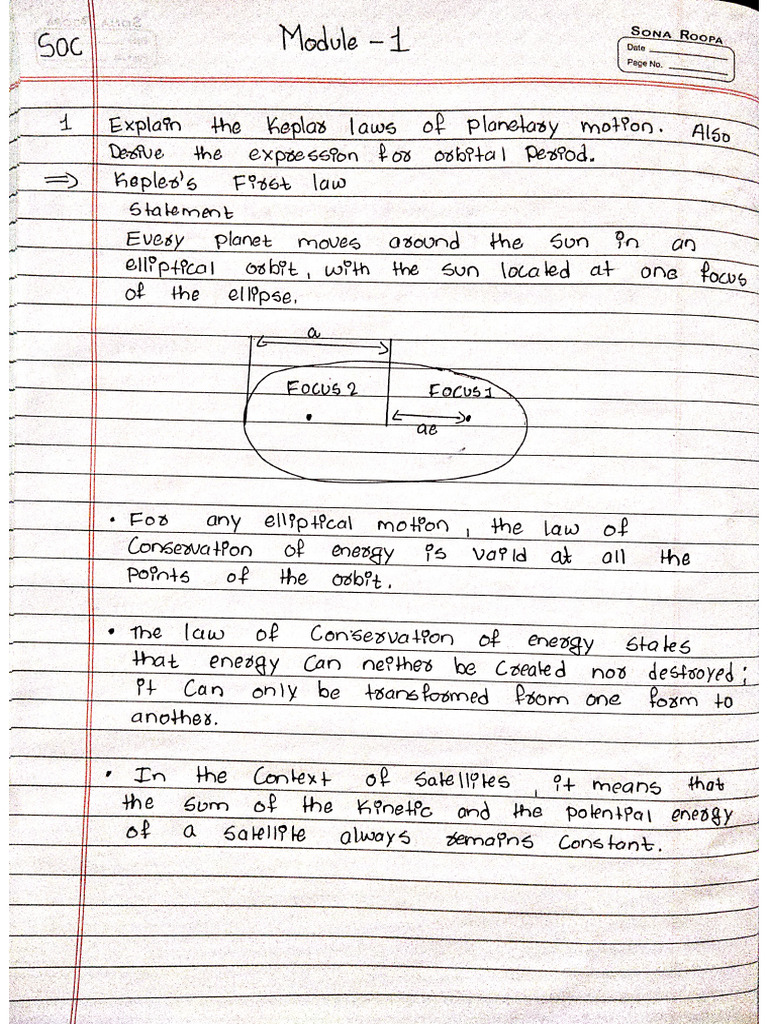 SONA ROOPA
Date
Page No.
SOC
Module - 1
1 Explain the Keplar laws of planetary motion. Also
Derive the expression for orbital Period.
⇒ Kepler's First law
Statement
Every planet moves around the Sun in an
elliptical orbit, with the sun located at one focus
of the ellipse.
a
FOCUS 2 FOCUS 1
ae
• For any elliptical motion, the law of
Conservation of energy is vaild at all the
Points of the orbit.
• The law of Conservation of energy states
that energy Can neither be Created nor destroyed;
it Can only be transformed from one form to
another.
• In the Context of Satellites, it means that
the sum of the Kinetic and the potential energy
of a Satellite always remains Constant.